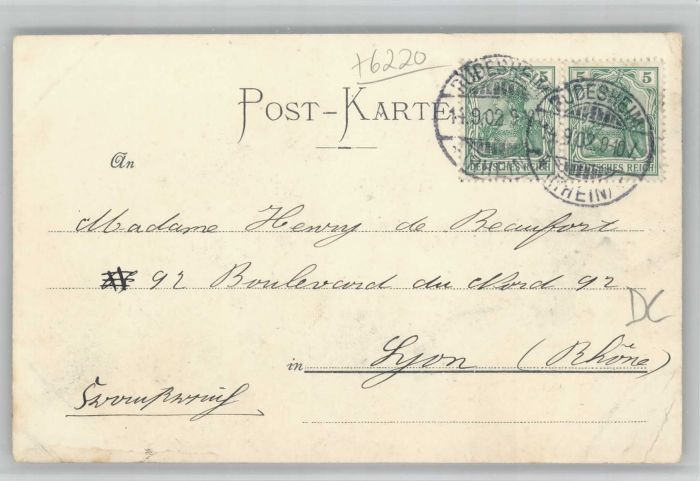 +6220
POST-KARTE
5 5 5
RÜDESHEIM
14.9.02 9-10V
(RHEIN)
RÜDESHEIM
14.9.02 9-10V
(RHEIN)
DEUTSCHES REICH DEUTSCHES REICH
An
Madame Henry de Beaufort
92 Boulevard du Nord 92
DC
in Lyon (Rhône)
Frankreich